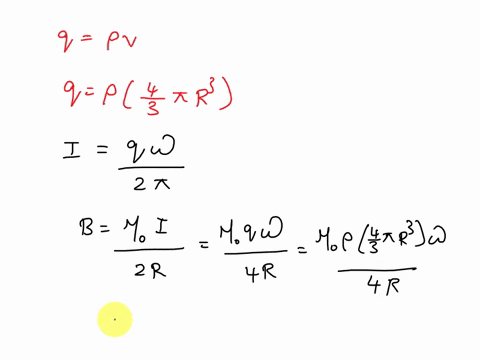 q = ρv
q = ρ(4/3 π R³)
I = qω/2π
B = M₀ I/2R = M₀qω/4R = M₀ρ(4/3πR³)ω/4R